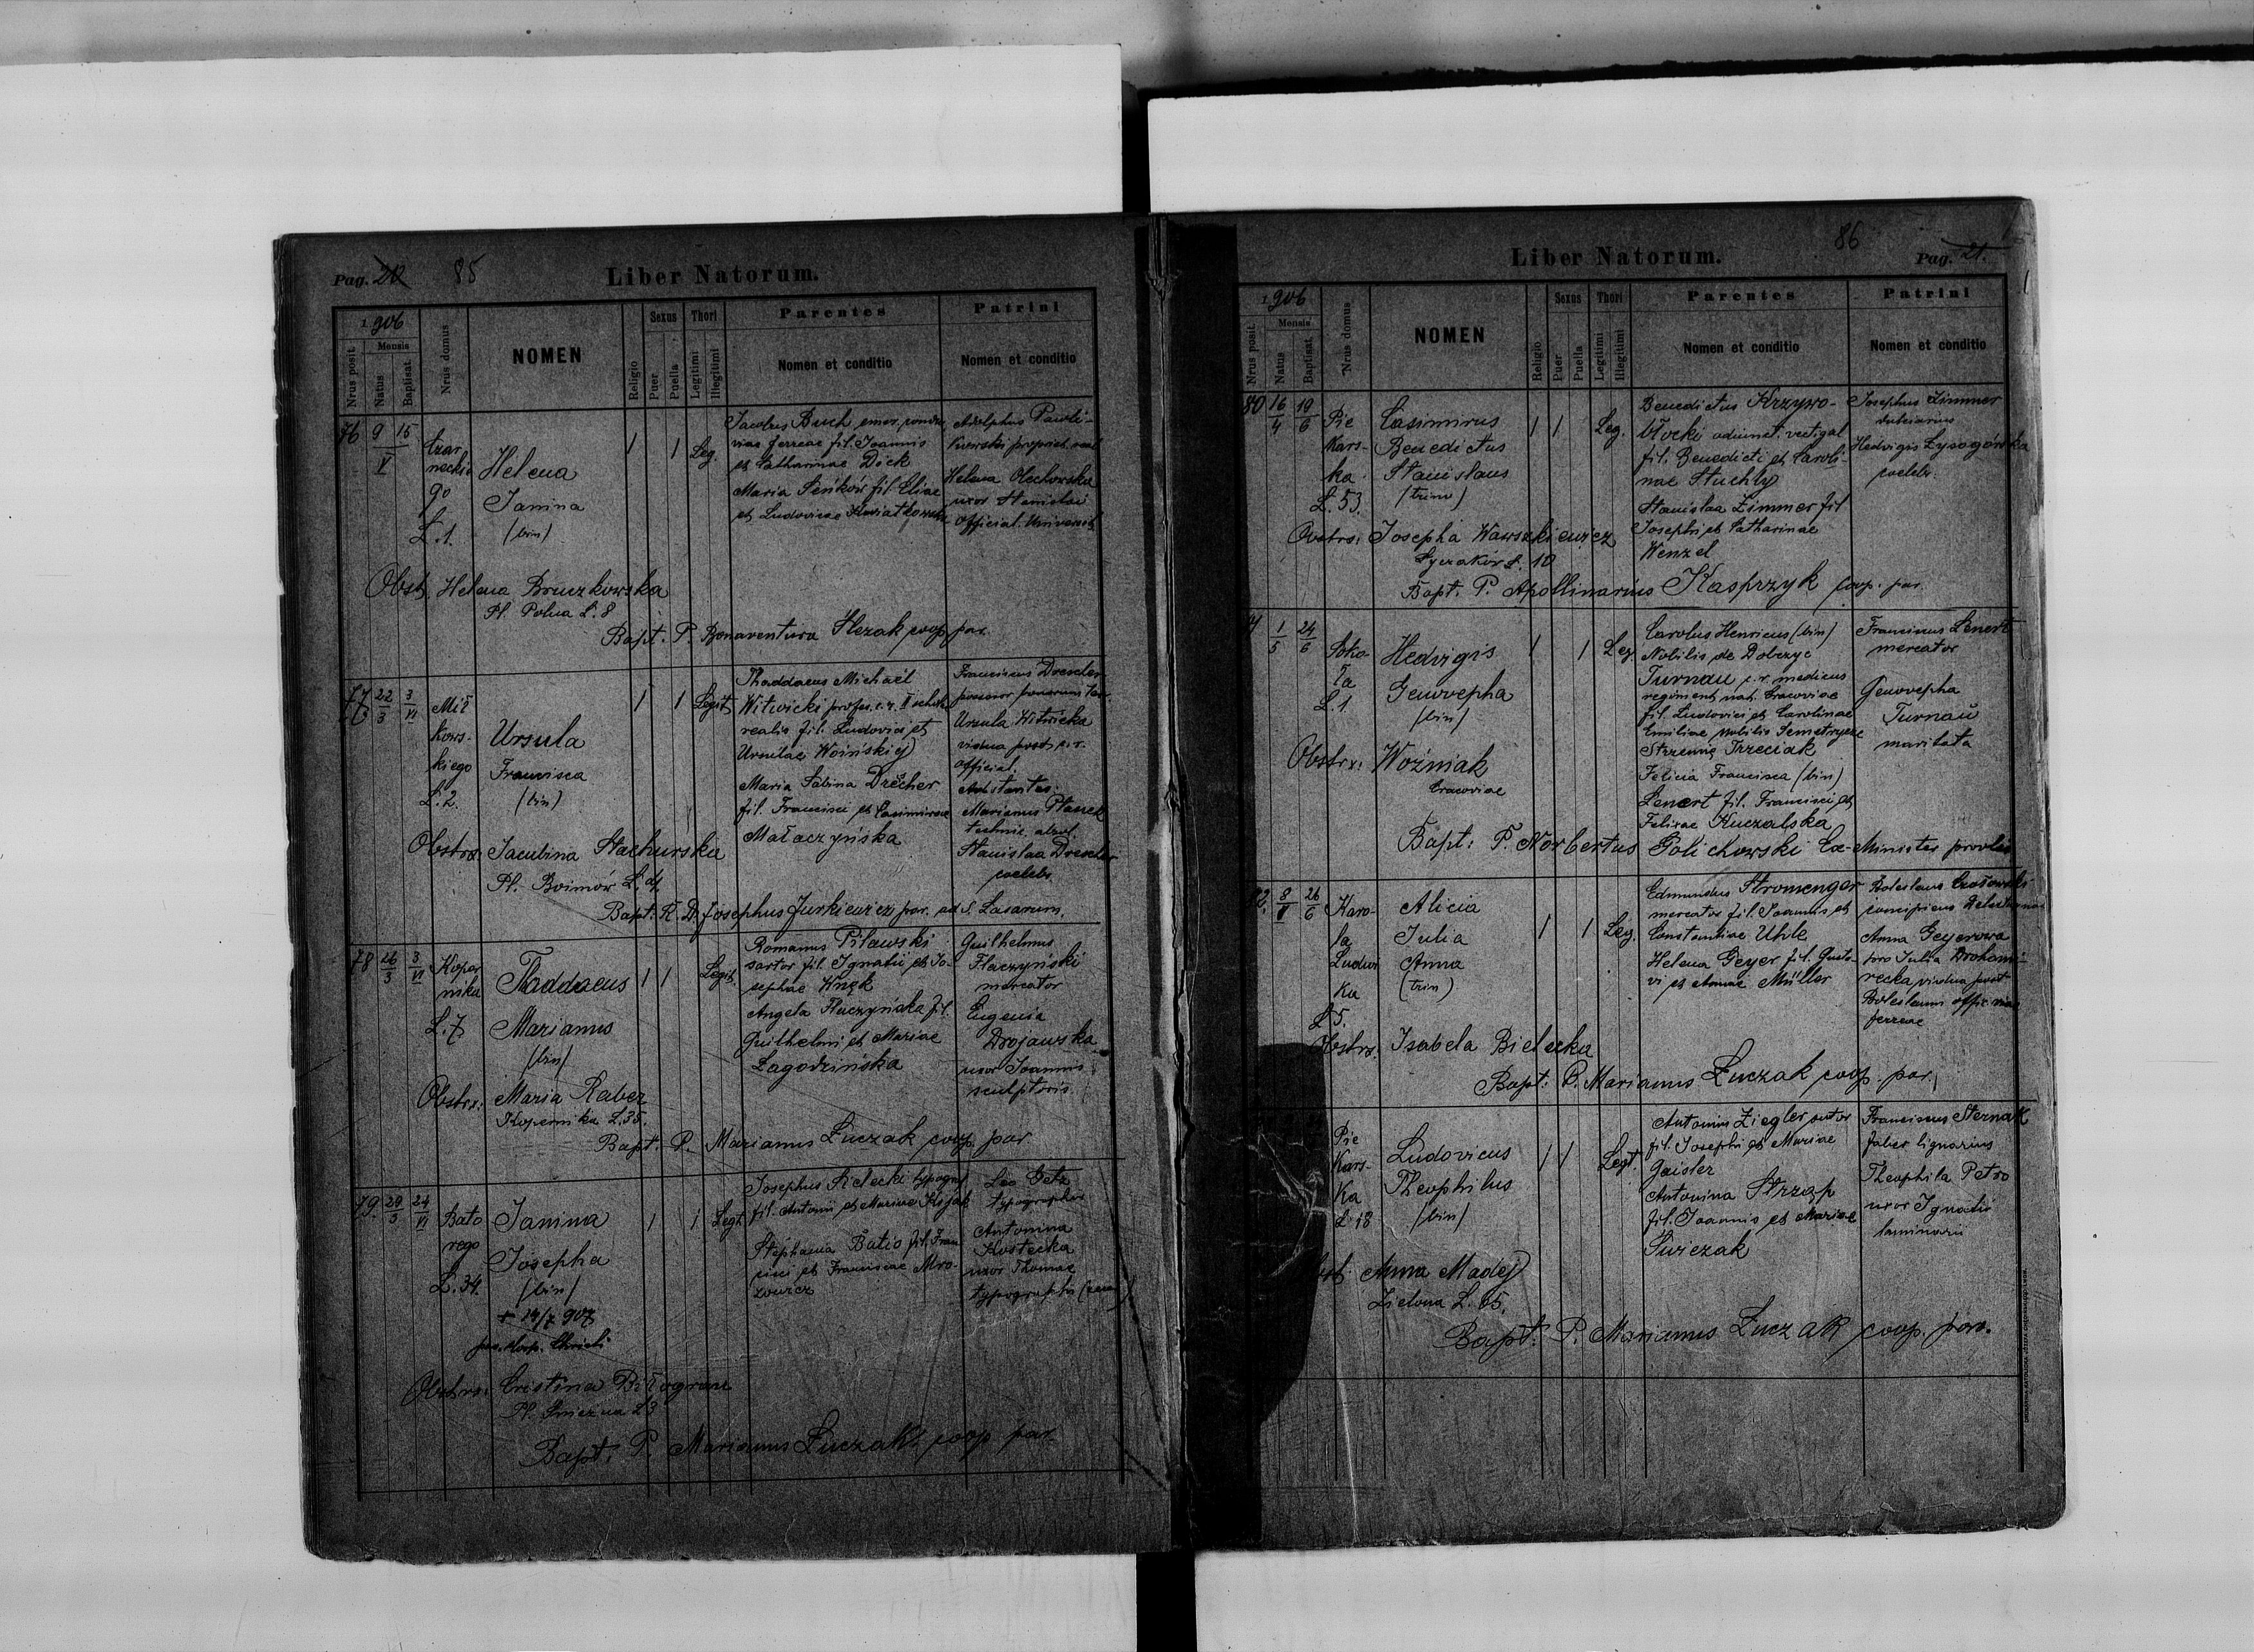 Pag. 20 85 Liber Natorum.
1906
Nrus posit.
Mensis
Natus
Baptisat.
Nrus domus
NOMEN
Religio
Sexus
Puer
Puella
Thori
Legitimi
Illegitimi
Parentes
Nomen et conditio
Patrini
Nomen et conditio
76 9/V 15
Czar
neckie
go
L. 1.
Helena
Janina
(bin)
1 1 Leg.
Jacobus Buch, emer. condu
viae ferreae fil. Joannis
et Catharinae Dick
Maria Seńków fil. Eliae
et Ludovicae Kwiatkowska
Adolphus Pawli-
kowski propriet. real
Helena Olechowska
uxor Stanislai
official. Universit
Obst. Helena Bruczkowska
Pl. Polna L. 8
Bapt. P. Bonaventura Slezak coop. par.
77 22/3 3/VI
Mił
kows-
kiego
L. 2.
Ursula
Francisca
(bin)
1 1 Legit.
Thaddaeus Michaël
Witwicki profes. c. r. II schol
realis fil. Ludovici et
Ursulae Woińskiej
Maria Sabina Drecher
fil. Francisci et Casimirae
Małaczyńska
Franciscus Drescher
Ursula Witwicka
vidua post c. r.
official.
Adstantes:
Marianus Ptaszek
technic. absol.
Stanislaa Drescher
coelebs
Obstrx: Jacubina Stachurska
Pl. Boimów L. 4.
Bapt. R. D. Josephus Jurkiewicz par. ad S. Lasarum.
78 26/3 3/VI
Koper
nika
L. 7
Thaddaeus
Marianus
(bin)
1 1 Legit.
Romanus Pilawski
sartor fil. Ignatii et Jo-
sephae Wnęk
Angela Fluczyńska fil.
Guilhelmi et Mariae
Łagodzińska
Guilhelmus
Fłaczyński
mercator
Eugenia
Drojawska
uxor Joannis
sculptoris
Obstrx: Maria Raber
Kopernika L. 35.
Bapt. P. Marianus Łuczak coop. par
79. 29/3 24/VI
Bato
rego
L. 34.
Janina
Josepha
(bin)
+ 14/7 907
par. Corp. Christi
1 1 Legt.
Josephus Sielecki typogr.
fil. Antonii et Mariae Kojak
Stephania Batio fil. Fran
cisci et Franciscae Mro-
zowicz
Leo Getz
typographus
Antonina
Kostecka
uxor Thomae
typographi
Obstrx: Cristina Biłogran
Pl. Śnieżna L 3
Bapt. P. Marianus Łuczak coop par
Liber Natorum. 86 Pag. 21.
1906
Nrus posit.
Mensis
Natus
Baptisat.
Nrus domus
NOMEN
Religio
Sexus
Puer
Puella
Thori
Legitimi
Illegitimi
Parentes
Nomen et conditio
Patrini
Nomen et conditio
80 16/4 10/6
Pie
Kars-
ka
L. 53.
Casimirus
Benedictus
Stanislaus
(trin)
1 1 Leg.
Benedictus Krzywo-
błocki adiunct. vectigal
fil. Benedicti et Caroli-
nae Stuchły
Stanislaa Zimmer fil
Josephi et Catharinae
Wenzel
Josephus Zimmer
Hedvigis Łysogórska
coelebs.
Obstrx: Josepha Wawszkiewicz
Łyczaków L. 10
Bapt. P. Apollinarius Kasprzyk coop. par.
1/5 24/6
Soko-
ła
L. 1
Hedvigis
Genovepha
(bin)
1 1 Leg.
Carolus Henricus (bin)
Nobilis de Dobczyc
Turnau c. r. medicus
regiment. nat. Cracoviae
fil. Ludovici et Carolinae
Emiliae Nobilis
Strzemię Trzeciak
Felicia Francisca (bin)
Lenert fil. Francisci et
Felicae Kuczalska
Franciscus Lenert
mercator
Genovepha
Turnau
maritata
Obstrx: Woźniak
Cracoviae
Bapt: P. Norbertus Golichowski Ex-Minister provlis
82. 8/V 26/6
Karo-
la
Ludwi
ka
L 5.
Alicia
Julia
Anna
(trin)
1 1 Leg.
Edmundus Stromenger
mercator fil. Joannis et
Constantiae Uhle
Helena Geyer fil. Gusta-
vi et Annae Müller
Boleslaus Czołowski
Anna Geyerowa
pro Julia Drohomi-
recka vidua post
Boleslaum offic. viae
ferreae
Obstrx: Isabela Bielecka
Bapt: P. Marianus Łuczak coop. par.
Pie
Kars-
Ka
L 18
Ludovicus
Theophilus
(bin)
1 1 Legt.
Antonius Ziegler sutor
fil. Josephi et Mariae
Gaisler
Antonina Strząp
fil. Joannis et Mariae
Świczak
Franciscus Sternak
faber lignarius
Theophila Petro
uxor Ignatii
laminarii
Anna Madej
Zielona L. 65.
Bapt: P. Marianus Łuczak coop. par.